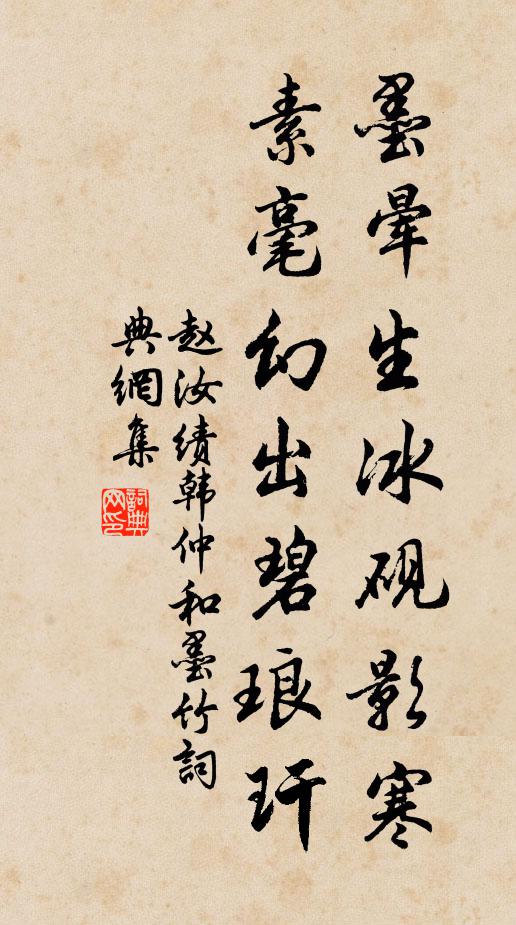 墨晕生冰砚影寒
素毫幻出碧琅玕
赵汝绩韩仲和墨竹詞
典網集
詞典
网印